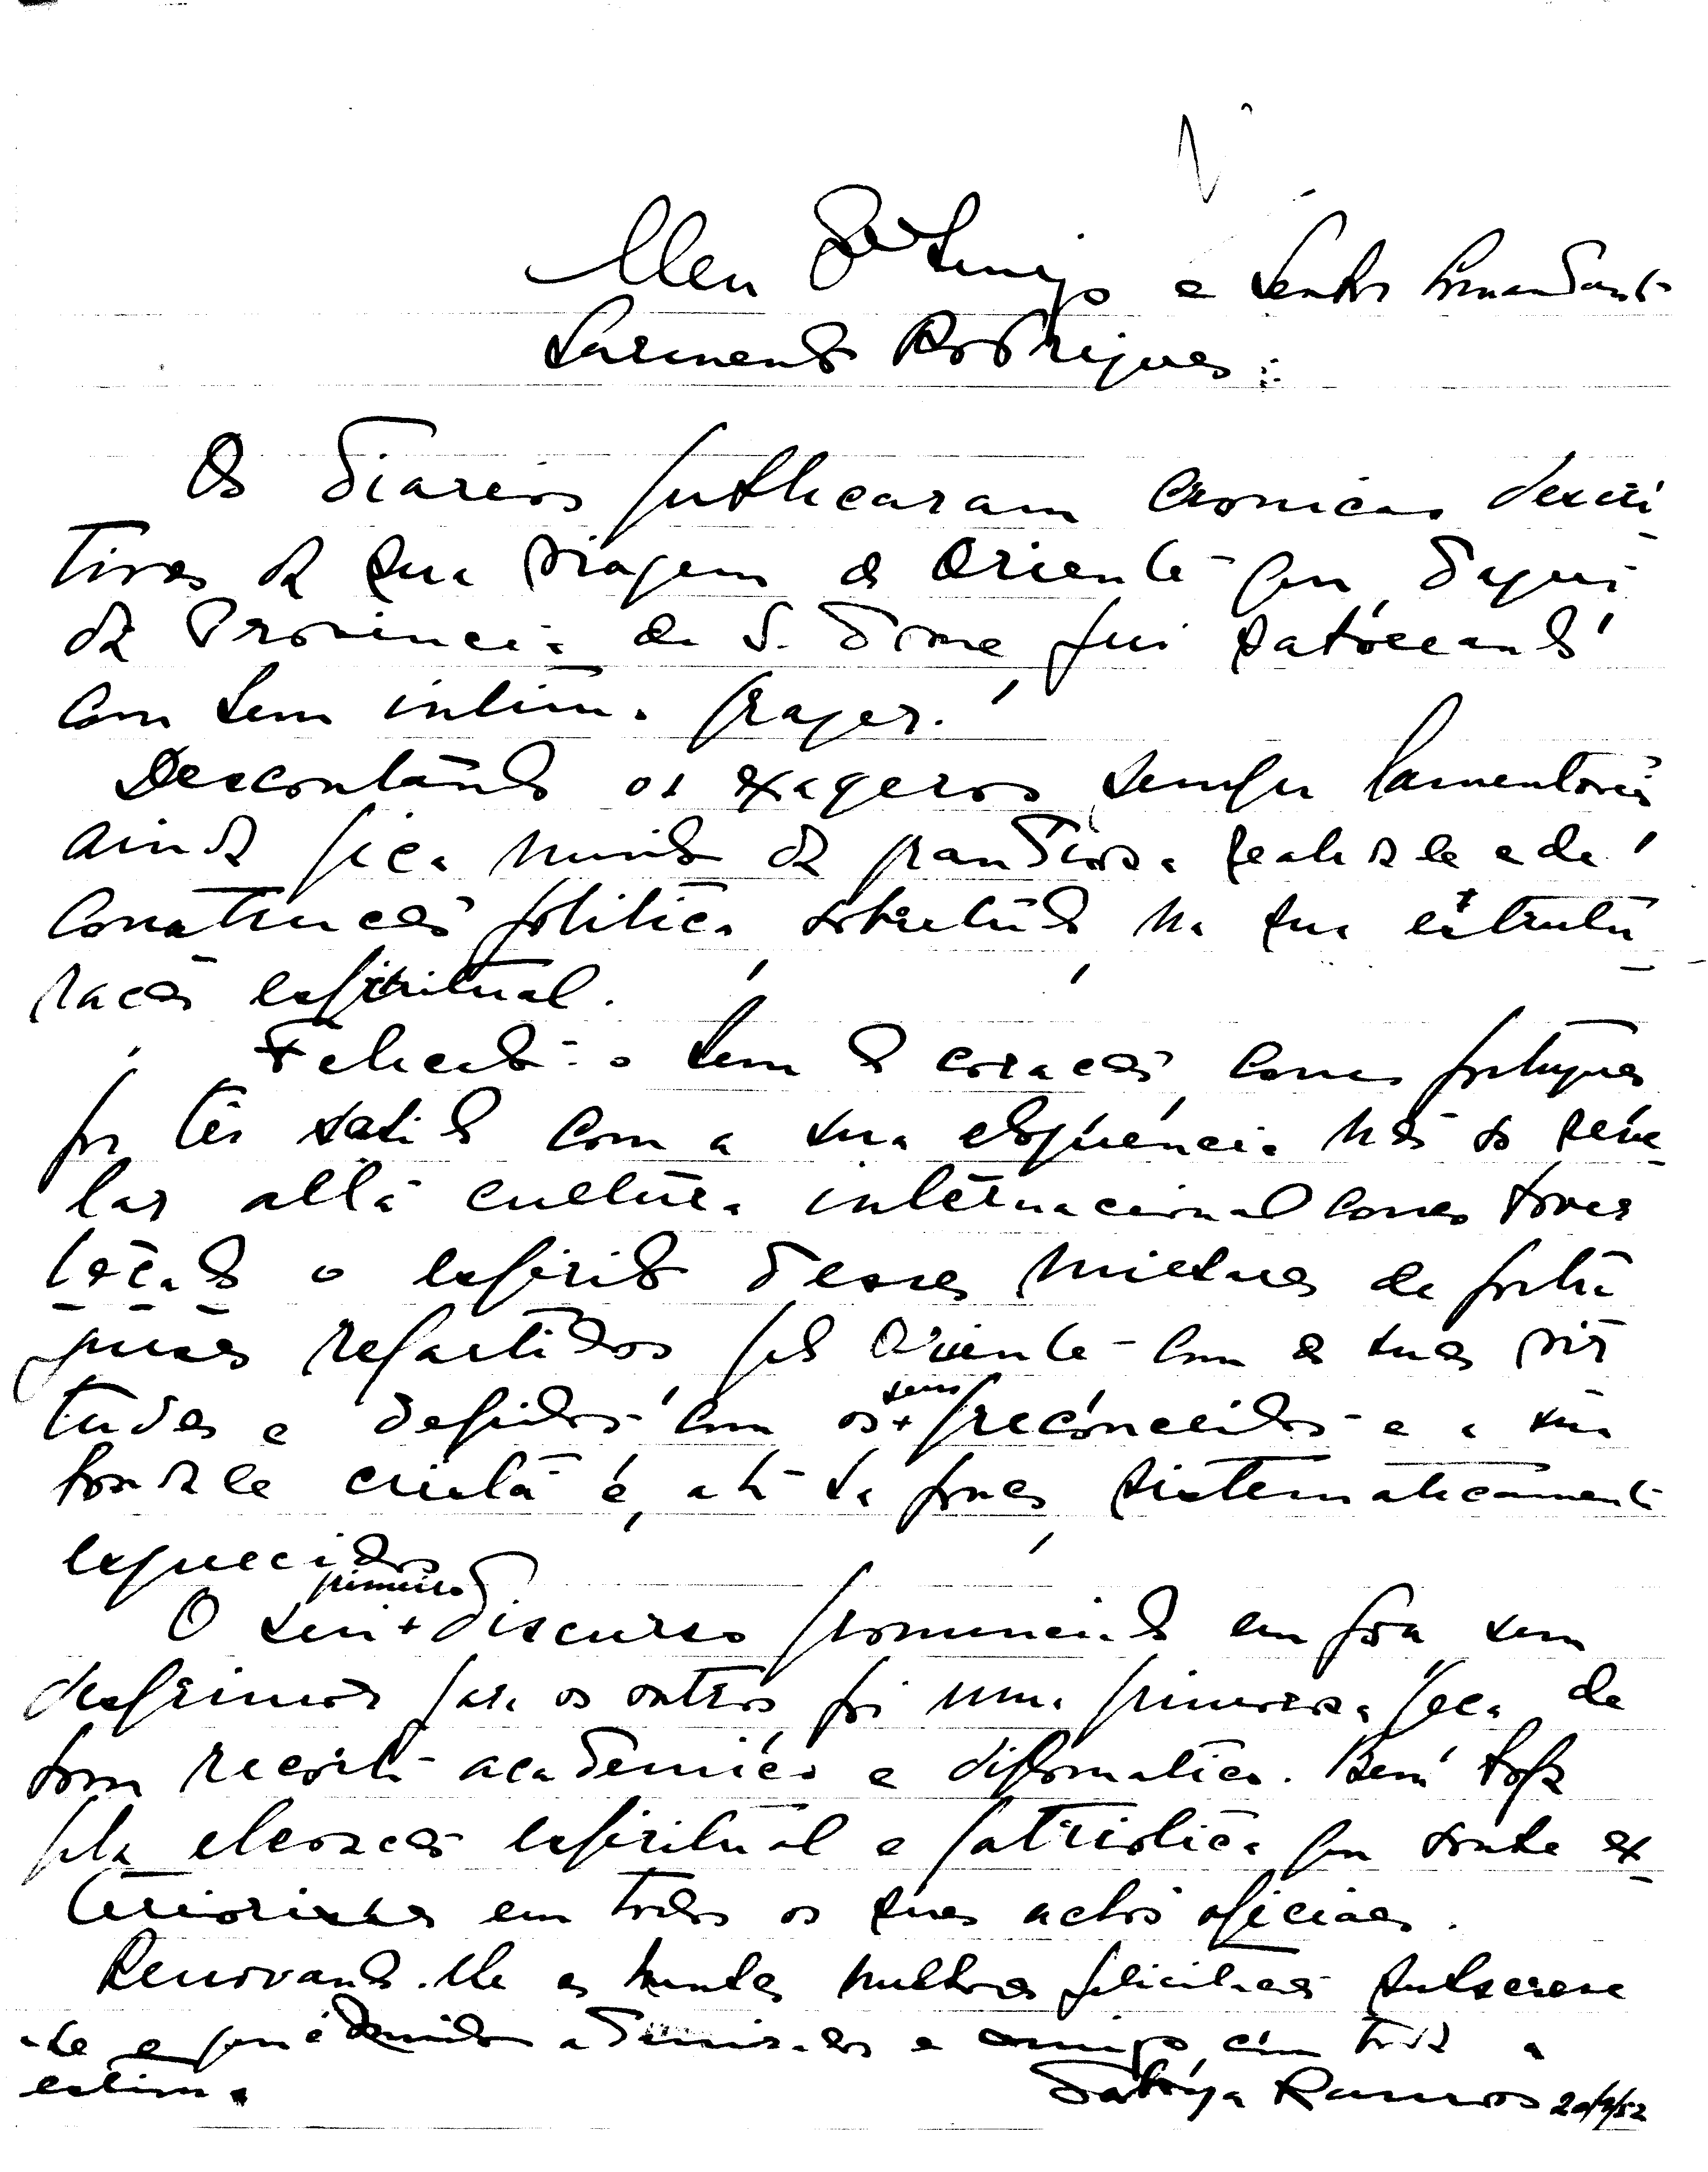 Meu Exmo Amigo e Senhor Comandante
Sarmento Rodrigues:
Os diarios publicaram cronicas descri
tivas da sua viagem ao Oriente que daqui
da Provincia de S. Tome fui saboreando
com bem intimo prazer.
Descontando os exageros sempre lamentaveis
ainda fica muito da grandiosa realidade de
construcão politica, sobretudo na sua estrutu
racão espiritual.
Felicito-o bem do coracão, como português
por ter sabido com a sua eloquencia não so reve
lar alta cultura internacional como haver
tocado o espirito desses nucleos de portu
gueses repartidos pelo Oriente - com as suas vir
tudes e defeitos com os seus preconceitos - e a sua
bondade cristã é, até ha pouco, sistematicamente
esquecidos
O seu primeiro discurso pronunciado em Goa sem
desprimor para os outros foi uma primorosa peça de
bom recorte academico e diplomatico. Bem haja
pela elevacão espiritual e patriotica que soube ex
teriorisar em todos os seus actos oficiaes.
Renovando-lhe as minhas melhores felicitacões subscreve
-se o que é admirador e amigo com toda a
estima
Ramos 20/9/52